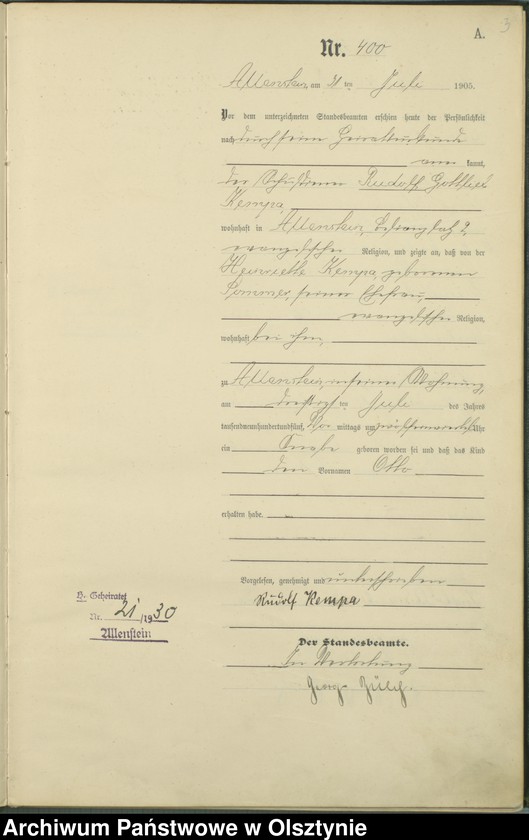 3
A.
Nr. 400
Allenstein, am 31 ten Juli 1905.
Vor dem unterzeichneten Standesbeamten erschien heute, der Persönlichkeit
nach durch seine Heiratsurkunde
aner kannt,
der Rudolf Gottlieb
Kempa,
wohnhaft in Allenstein, 2,
evangelischer Religion, und zeigte an, daß von der
Henriette Kempa, geborenen
Sommer, seiner Ehefrau,
evangelischer Religion,
wohnhaft bei ihm,
zu Allenstein, in seiner Wohnung,
am dreißig ten Juli des Jahres
tausendneunhundertundfünf, mittags um Uhr
ein Knabe geboren worden sei und daß das Kind
den Vornamen Otto
erhalten habe.
Vorgelesen, genehmigt und unterschrieben
Rudolf Kempa
Der Standesbeamte.
In Vertretung
Georg Zülch.
Geheiratet
Nr. 21/1930
Allenstein
Archiwum Państwowe w Olsztynie